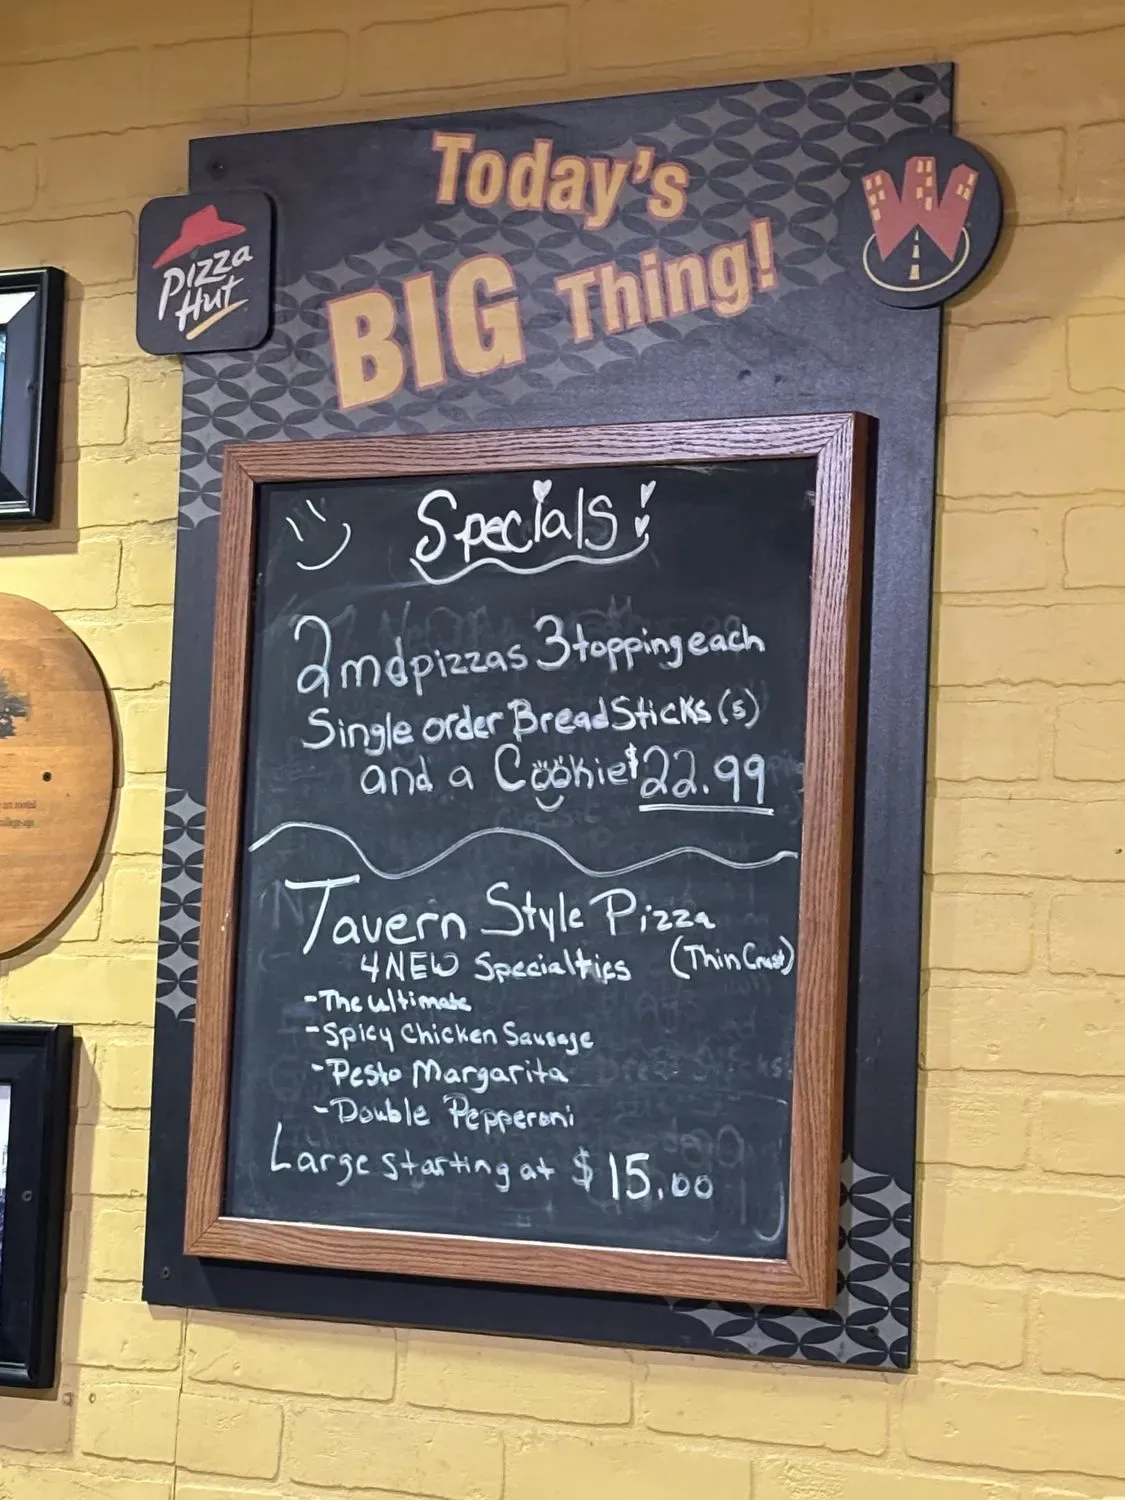 Today's
BIG Thing!
Pizza
Hut
W
Specials!
2 md pizzas 3 topping each
Single order BreadSticks (5)
and a Cookie $22.99
Tavern Style Pizza
4 NEW Specialties (Thin Crust)
- The Ultimate
- Spicy Chicken Sausage
- Pesto Margarita
- Double Pepperoni
Large starting at $15.00